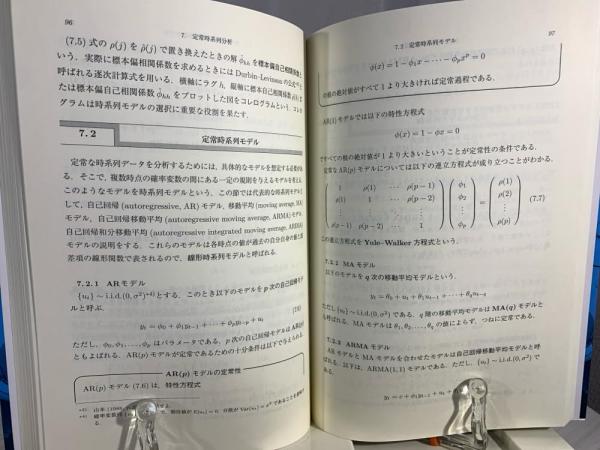 96
7. 定常時系列分析
(7.5) 式の ρ(j) を ρ̂(j) で置き換えたときの解 φ̂hh を標本偏自己相関係数と
いう. 実際に標本偏相関係数を求めるときには Durbin-Levinson の公式
呼ばれる逐次計算式を用いる. 横軸にラグ h, 縦軸に標本自己相関係数
たは標本偏自己相関係数 φ̂hh をプロットした図をコレログラムという. コレロ
グラムは時系列モデルの選択に重要な役割を果たす.
7.2 定常時系列モデル
定常な時系列データを分析するためには, 具体的なモデルを想定する必要があ
る. そこで, 複数時点の確率変数の間にある一定の規則を与えるモデルを考える.
このようなモデルを時系列モデルという. この節では代表的な時系列モデルと
して, 自己回帰 (autoregressive, AR) モデル, 移動平均 (moving average, MA)
モデル, 自己回帰移動平均 (autoregressive moving average, ARMA) モデル,
自己回帰和分移動平均 (autoregressive integrated moving average, ARIMA)
モデルの説明をする. これらのモデルは各時点の値が過去の自分自身の値と誤
差項の線形関数で表されるので, 線形時系列モデルと呼ばれる.
7.2.1 ARモデル
{ut} ~ i.i.d.(0, σ²)*4) とする. このとき以下のモデルを p 次の自己回帰モデ
ルと呼ぶ.
yt = φ0 + φ1yt−1 + ··· + φpyt−p + ut (7.6)
ただし, φ0, φ1, ..., φp はパラメータである. p 次の自己回帰モデルは AR(p)
ともよばれる. AR(p) モデルが定常であるための十分条件は以下で与えられる.
AR(p) モデルの定常性
AR(p) モデル (7.6) は, 特性方程式
*3) 山本 (1988
*4) 確率変数
て, 期待値が E(ut) = 0, 分散が Var(ut) = σ² であることを意味す
7.2 定常時系列モデル
97
φ(x) = 1 − φ1x − ··· − φpx^p = 0
の根の絶対値がすべて 1 より大きければ定常過程である.
AR(1) モデルでは以下の特性方程式
φ(x) = 1 − φx = 0
ですべての根の絶対値が 1 より大きいということが定常性の条件である.
定常な AR(p) モデルについては以下の連立方程式が成り立つことがわかる.
( 1 ρ(1) ··· ρ(p − 1) ) ( φ1 ) ( ρ(1) )
( ρ(1) 1 ··· ρ(p − 2) ) ( φ2 ) = ( ρ(2) ) (7.7)
( ⋮ ⋮ ⋮ ) ( ⋮ ) ( ⋮ )
( ρ(p − 1) ρ(p − 2) ··· 1 ) ( φp ) ( ρ(p) )
この連立方程式を Yule–Walker 方程式という.
7.2.2 MA モデル
以下のモデルを q 次の移動平均モデルという.
yt = θ0 + ut + θ1ut−1 + ··· + θqut−q
ただし {ut} ~ i.i.d.(0, σ²) である. q 階の移動平均モデルは MA(q) モデルと
も呼ばれる. MA モデルは θ1, θ2, ..., θq の値によらず, つねに定常である.
7.2.3 ARMA モデル
AR モデルと MA モデルを合わせたモデルは自己回帰移動平均モデルと呼
ばれる. 以下は, ARMA(1, 1) モデルである. ただし, {ut} ~ i.i.d.(0, σ²) で
ある.
yt = c + φ1yt−1 + ut +